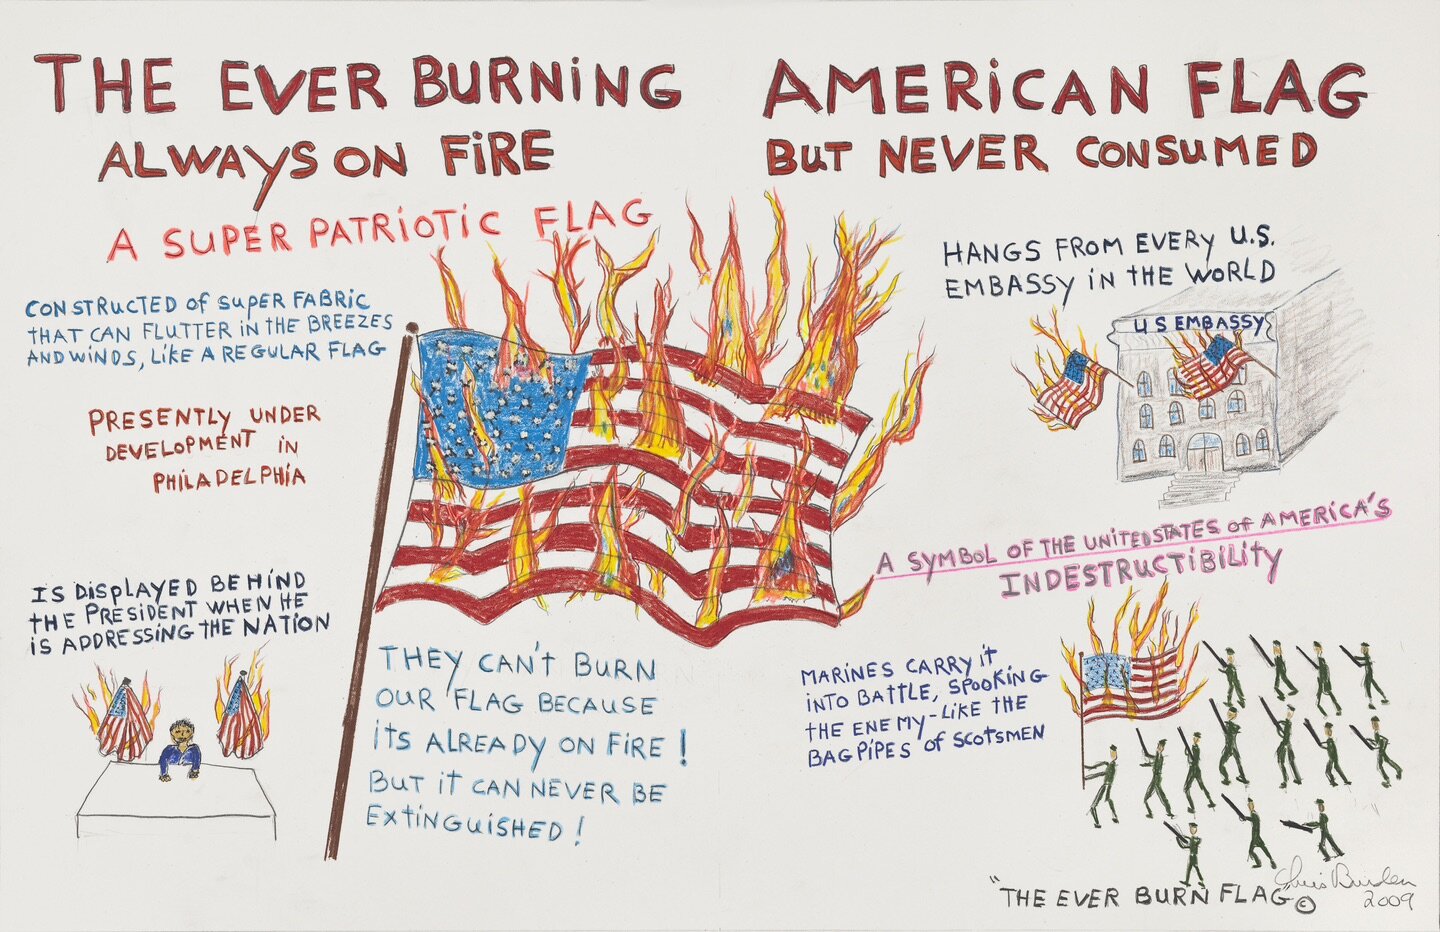 THE EVER BURNING AMERICAN FLAG
ALWAYS ON FIRE BUT NEVER CONSUMED
A SUPER PATRIOTIC FLAG
CONSTRUCTED of SUPER FABRIC
THAT CAN FLUTTER IN THE BREEZES
AND WINDS, LIKE A REGULAR FLAG
PRESENTLY UNDER
DEVELOPMENT IN
PHILADELPHIA
IS DISPLAYED BEHIND
THE PRESIDENT WHEN HE
IS ADDRESSING THE NATION
THEY CAN'T BURN
OUR FLAG BECAUSE
ITS ALREADY ON FIRE!
BUT IT CAN NEVER BE
EXTINGUISHED!
HANGS FROM EVERY U.S.
EMBASSY IN THE WORLD
U S EMBASSY
A SYMBOL OF THE UNITED STATES of AMERICA'S
INDESTRUCTIBILITY
MARINES CARRY IT
INTO BATTLE, SPOOKING
THE ENEMY-LIKE THE
BAGPIPES of SCOTSMEN
"THE EVER BURN FLAG"©
Chris Burden
2009